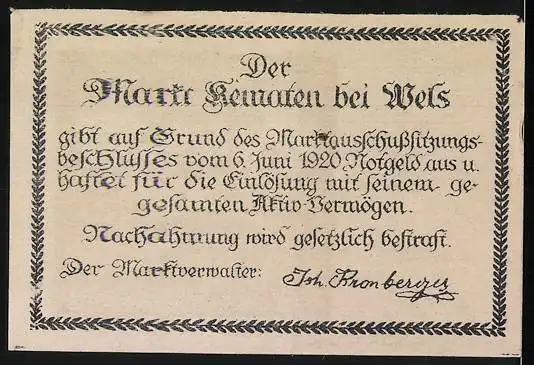 Der
Markt Kematen bei Wels
gibt auf Grund des Marktausschußsitzungs-
beschlusses vom 6. Juni 1920 Notgeld aus u.
haftet für die Einlösung mit seinem ge-
gesamten Aktiv-Vermögen.
Nachahmung wird gesetzlich bestraft.
Der Marktverwalter: Joh. Kronberger